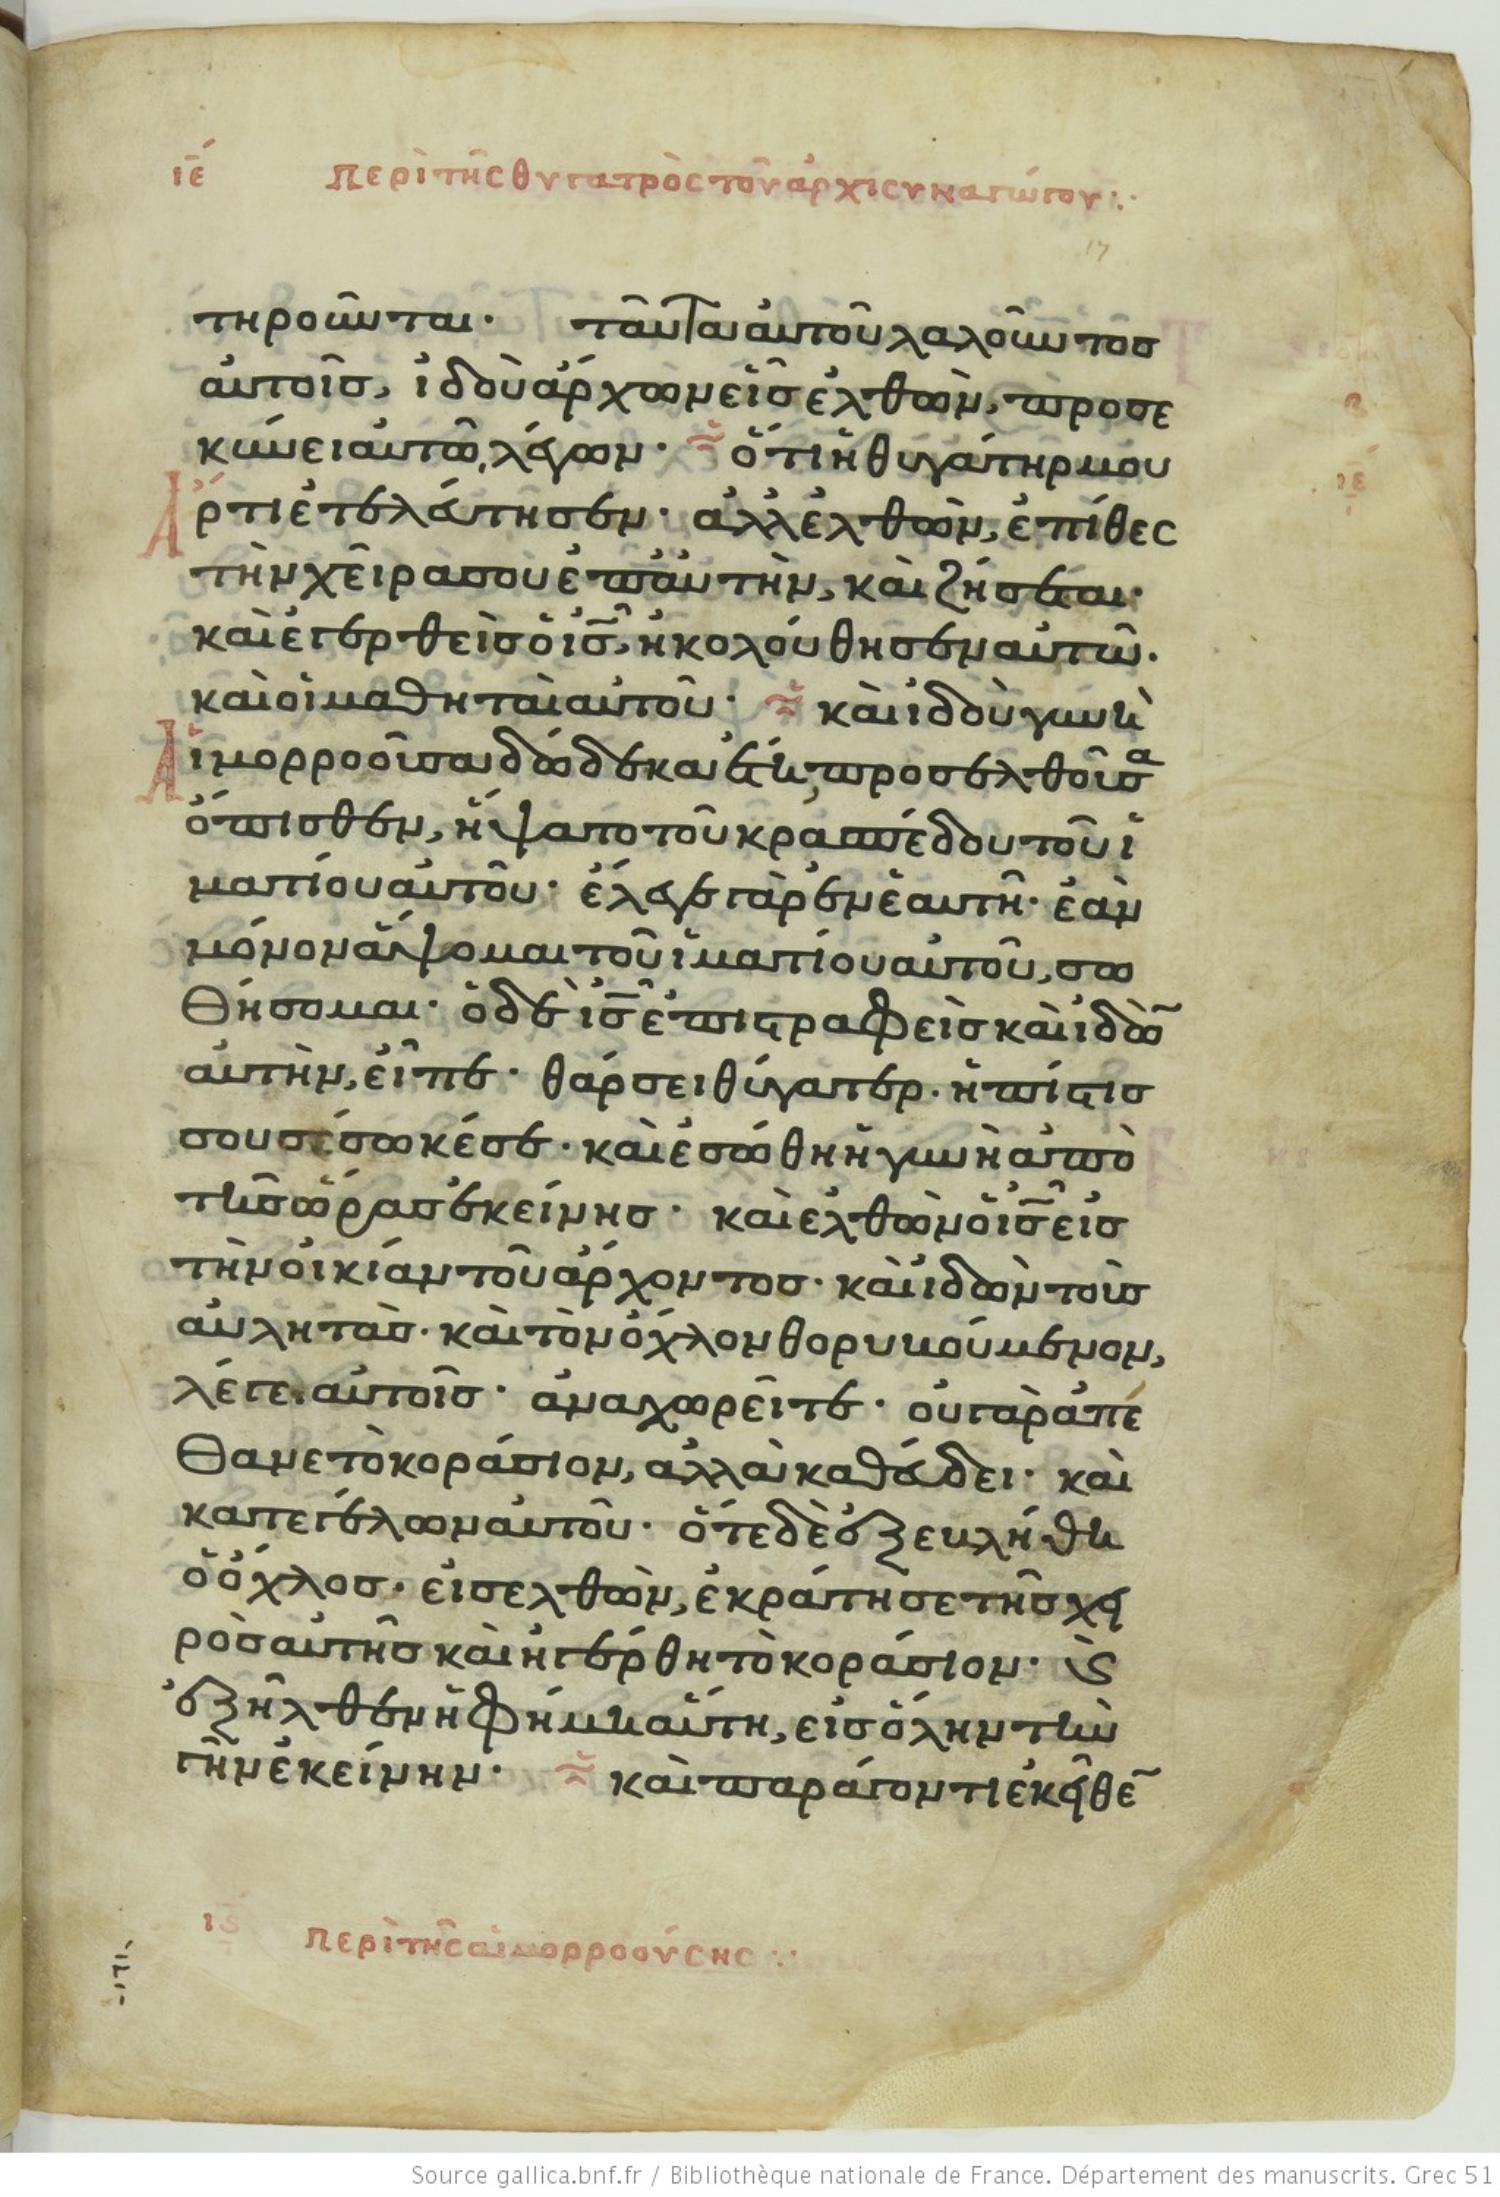 ιε̄ Περὶ τῆς θυγατρὸς τοῦ ἀρχισυναγώγου
17
τηροῦνται· ταῦτα αὐτοῦ λαλοῦντος
αὐτοῖς, ἰδοὺ ἄρχων εἰσελθὼν, προσε
κύνει αὐτῶ, λέγων· ὅτι ἡ θυγάτηρ μου
Ἄρτι ἐτελεύτησεν· ἀλλ ἐλθὼν, ἐπίθες
τὴν χεῖρα σου ἐπ αὐτὴν, καὶ ζήσεται·
καὶ ἐγερθεὶς ὁ ις̄, ἠκολούθησεν αὐτῶ·
καὶ οἱ μαθηταὶ αὐτοῦ· καὶ ἰδοὺ γυνὴ
Αἱμορροοῦσα δώδεκα ἔτη, προσελθοῦσα
ὄπισθεν, ἥψατο τοῦ κρασπέδου τοῦ ἱ
ματίου αὐτοῦ· ἔλεγε γὰρ ἐν ἑαυτῆ· ἐὰν
μόνον ἅψομαι τοῦ ἱματίου αὐτοῦ, σω
θήσομαι· ὁ δὲ ις̄ ἐπιστραφεὶς καὶ ἰδὼ̅
αὐτὴν, εἶπε· θάρσει θύγατερ· ἡ πίστις
σου σέσωκέ σε· καὶ ἐσώθη ἡ γυνὴ ἀπὸ
τῆς ὥρας ἐκείνης· καὶ ἐλθὼν ὁ ις̄ εἰς
τὴν οἰκίαν τοῦ ἄρχοντος· καὶ ἰδὼν τοὺς
αὐλητὰς· καὶ τὸν ὄχλον θορυβούμενον,
λέγει αὐτοῖς· ἀναχωρεῖτε· οὐ γὰρ ἀπέ
θανε τὸ κοράσιον, ἀλλὰ καθεύδει· καὶ
κατεγέλων αὐτοῦ· ὅτε δὲ ἐξεβλήθη
ὁ ὄχλος· εἰσελθὼν, ἐκράτησε τῆς χει
ρὸς αὐτῆς καὶ ἠγέρθη τὸ κοράσιον· ϗ
ἐξῆλθεν ἡ φήμη αὕτη, εἰς ὅλην τὴν
γῆν ἐκείνην· καὶ παράγοντι ἐκεῖθε̅
ις̄ Περὶ τῆς αἱμορροούσης
Source gallica.bnf.fr / Bibliothèque nationale de France. Département des manuscrits. Grec 51